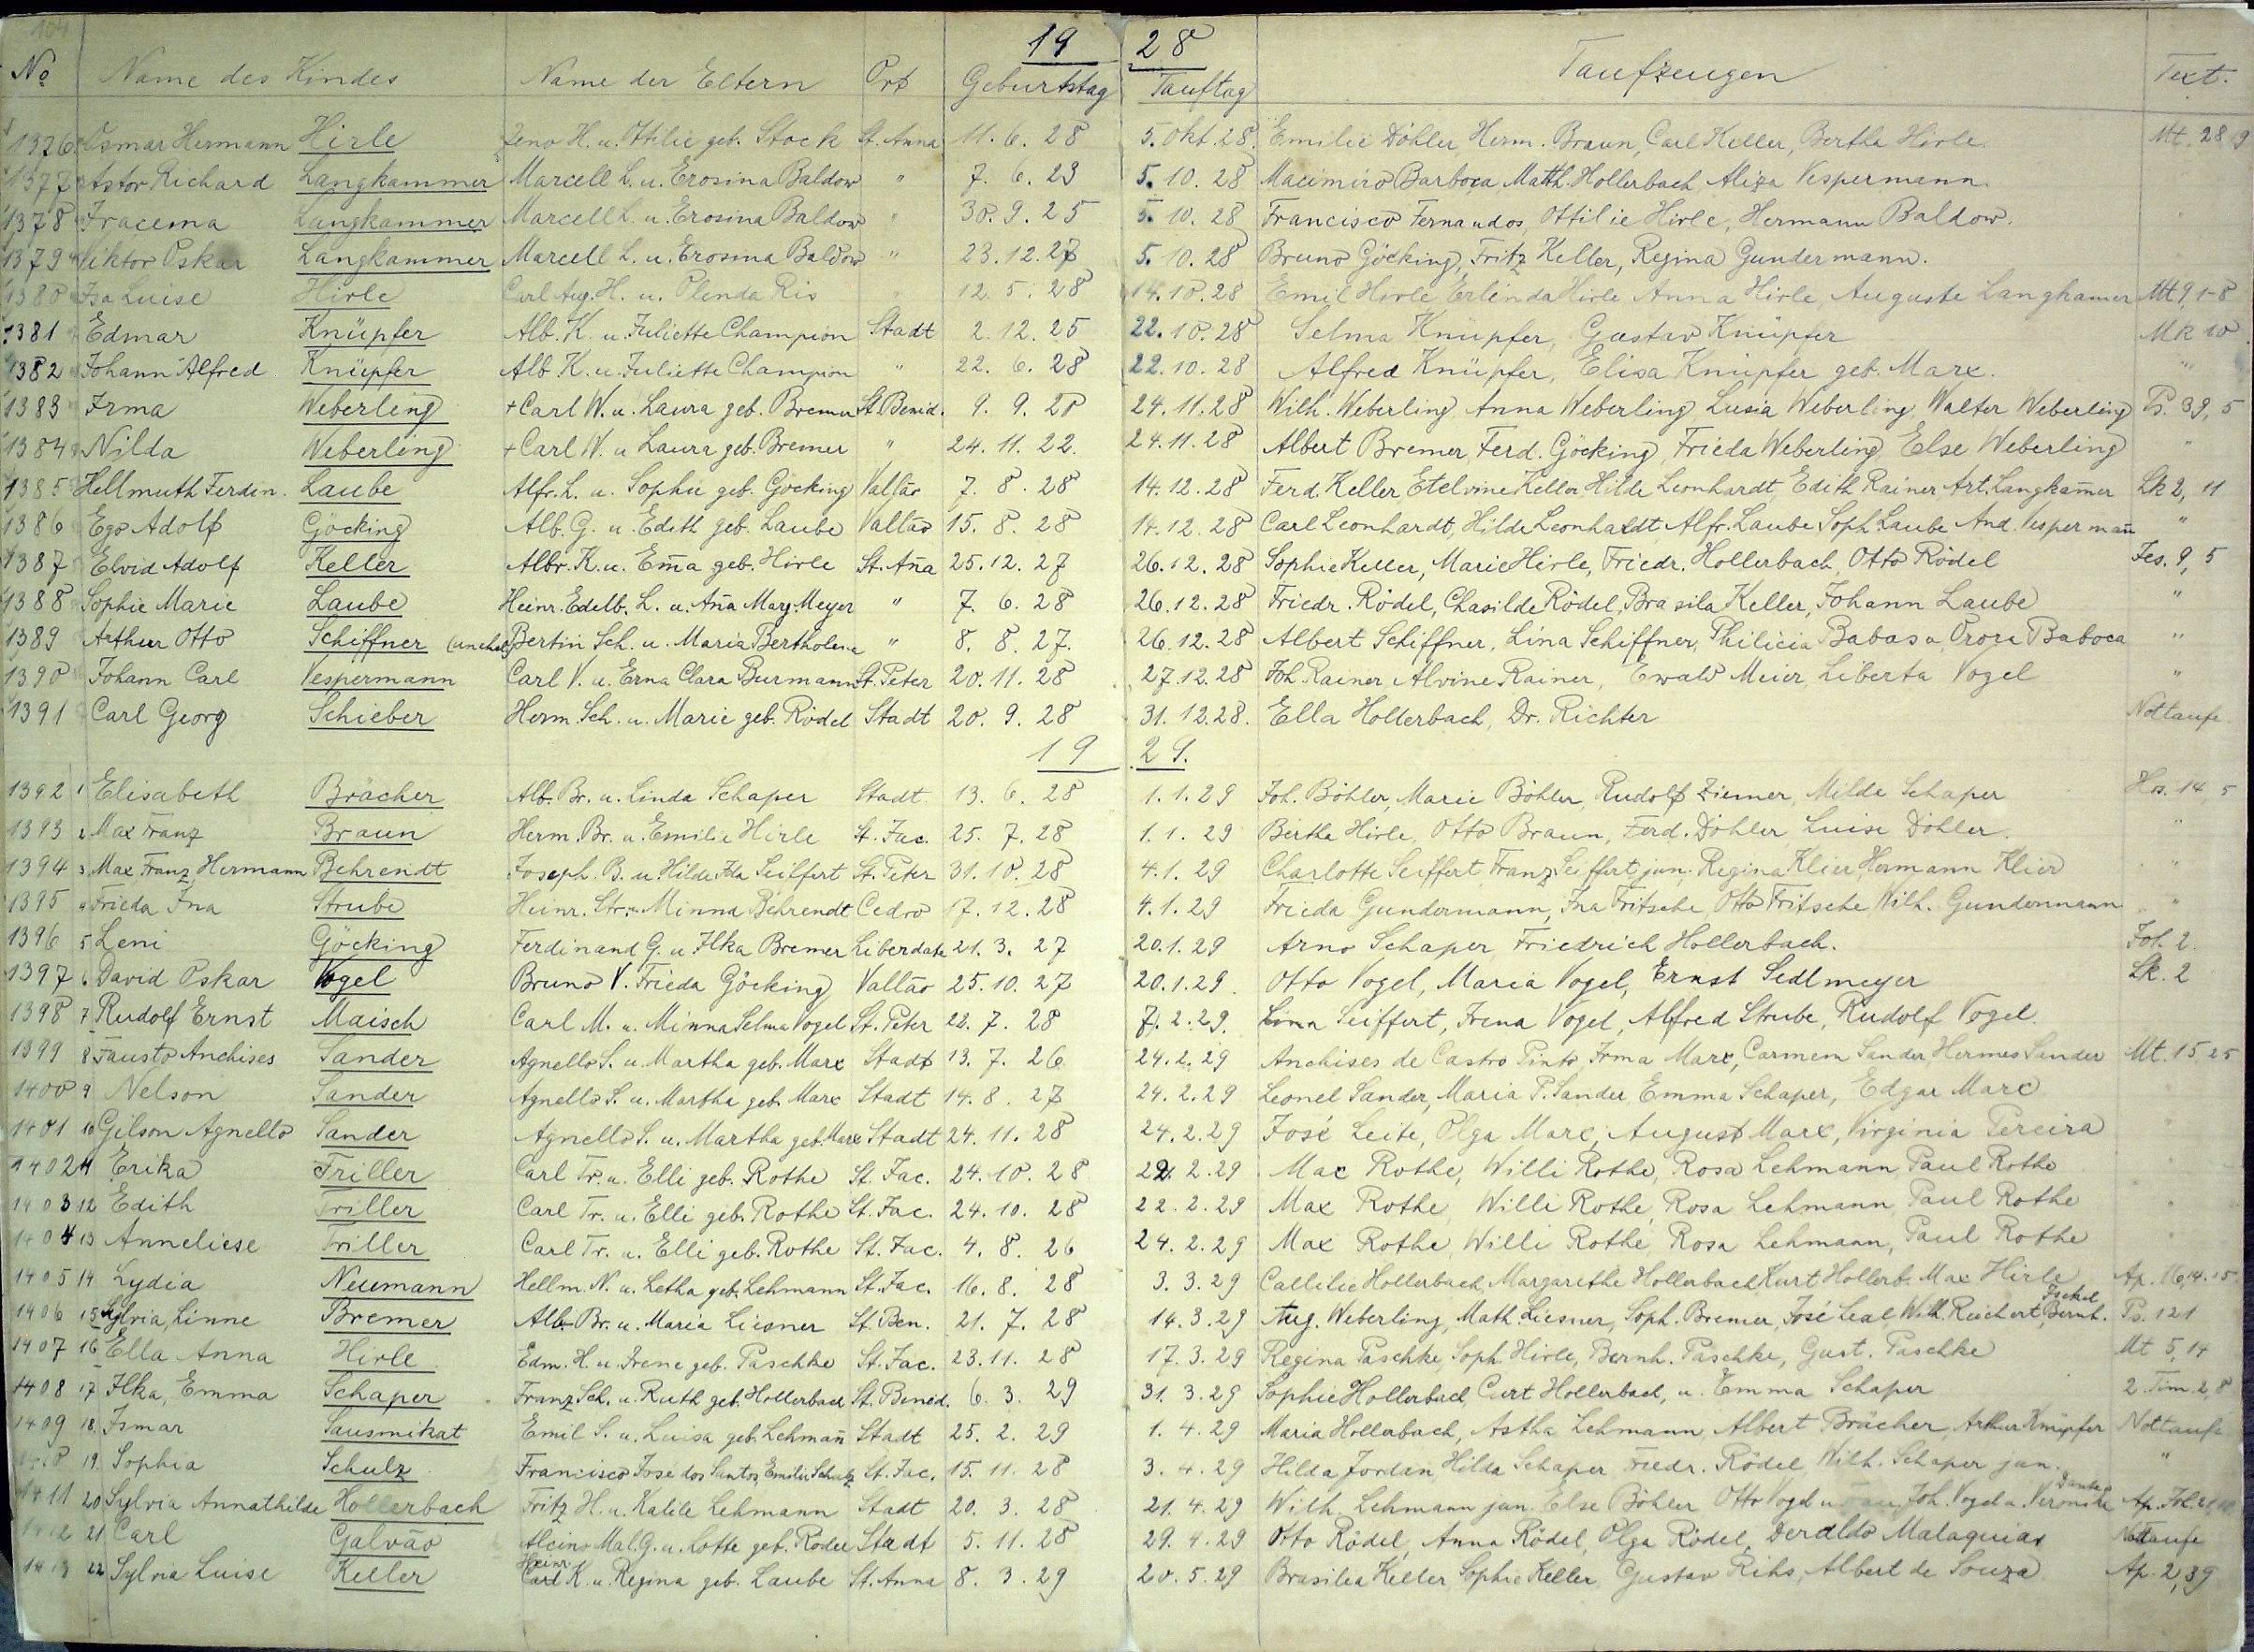 104
19 28
No Name des Kindes Name der Eltern Ort Geburtstag Tauftag Taufzeugen Text.
1376 Osmar Hermann Hirle Zeno H. u. Ottilie geb. Stock St. Anna 11. 6. 28 5. Okt. 28. Emilie Döhler Herm. Braun, Carl Keller, Bertha Hirle. Mt. 28 19
1377 Astor Richard Langkammer Marcell L. u. Erosina Baldow " 7. 6. 23 5. 10. 28 Macimiro Barboca Matth. Hollerbach Aliza Vespermann.
1378 Iracema Langkammer Marcell L. u. Erosina Baldow " 30. 9. 25 5. 10. 28 Francisco Fernandos, Ottilie Hirle, Hermann Baldow.
1379 Viktor Oskar Langkammer Marcell L. u. Erosina Baldow " 23. 12. 27 5. 10. 28 Bruno Göcking, Fritz Keller, Regina Gundermann.
1380 Isa Luise Hirle Carl Aug. H. u. Olenda Ris " 12. 5. 28 14. 10. 28 Emil Hirle Erlinda Hirle Anna Hirle, Auguste Langkamer Mt 9, 1-8
1381 Edmar Knüpfer Alb. K. u. Juliette Champion Stadt 2. 12. 25 22. 10. 28 Selma Knüpfer, Gustav Knüpfer Mk 10
1382 Johann Alfred Knüpfer Alb K. u. Juliette Champion " 22. 6. 28 22. 10. 28 Alfred Knüpfer, Elisa Knüpfer geb. Marx. "
1383 Irma Weberling + Carl W. u. Laura geb. Bremer St. Benid. 9. 9. 20 24. 11. 28 Wilh. Weberling Anna Weberling Lusia Weberling, Walter Weberling Ps. 39, 5
1384 Nilda Weberling + Carl W. u Laura geb. Bremer " 24. 11. 22. 24. 11. 28 Albert Bremer, Ferd. Göcking, Frieda Weberling, Else Weberling "
1385 Hellmuth Ferdin. Laube Alfr. L. u. Sophie geb. Göcking Valtão 7. 8. 28 14. 12. 28 Ferd. Keller Etelvine Keller Hilde Leonhardt, Edith Rainer Art. Langkam̄er Lk 2, 11
1386 Ego Adolf Göcking Alb. G. u. Edith geb. Laube Valtão 15. 8. 28 14. 12. 28 Carl Leonhardt, Hilde Leonhardt Alfr. Laube Soph Laube And. Vespermañ "
1387 Elvid Adolf Keller Albr. K. u. Em̄a geb. Hirle St. Añа 25. 12. 27 26. 12. 28 Sophie Keller, Marie Hirle, Friedr. Hollerbach, Otto Rödel Jes. 9, 5
1388 Sophie Marie Laube Heinr. Edelb. L. u. Aña Marg. Meyer " 7. 6. 28 26. 12. 28 Friedr. Rödel, Chasilde Rödel, Brasila Keller, Johann Laube "
1389 Arthur Otto Schiffner (unehel) Bertin Sch. u. Maria Bertholina " 8. 8. 27. 26. 12. 28 Albert Schiffner, Lina Schiffner, Philicia Babosa Orora Baboca "
1390 Johann Carl Vespermann Carl V. u. Erna Clara Burmann St. Peter 20. 11. 28 27. 12. 28 Joh. Rainer Alvine Rainer, Ewald Meier, Liberta Vogel "
1391 Carl Georg Schieber Herm. Sch. u. Marie geb. Rödel Stadt 20. 9. 28 31. 12. 28. Ella Hollerbach, Dr. Richter Nottaufe
19 29.
1392 1 Elisabeth Brächer Alb. Br. u. Linda Schaper Stadt 13. 6. 28 1. 1. 29 Joh. Böhler, Marie Böhler, Rudolf Ziemer, Milda Schaper Hos. 14, 5
1393 2 Max Franz Braun Herm. Br. u. Emilie Hirle St. Jac. 25. 7. 28 1. 1. 29 Bertha Hirle, Otto Braun, Ferd. Döhler Luise Döhler. "
1394 3 Max Franz Hermann Behrendt Joseph. B. u. Hilde Ida Seiffert St. Peter 31. 10. 28 4. 1. 29 Charlotte Seiffert Franz Seiffert jun. Regina Klier Hermann Klier "
1395 4 Frieda Ina Strube Heinr. Str. u. Minna Behrendt Cedro 17. 12. 28 4. 1. 29 Frieda Gundermann, Ina Fritsche, Otto Fritsche Wilh. Gundermann "
1396 5 Leni Göcking Ferdinand G. u Ilka Bremer Liberdate 21. 3. 27 20. 1. 29 Arno Schaper Friedrich Hollerbach. Joh. 2.
1397 6 David Oskar Vogel Bruno V. Frieda Göcking Valtão 25. 10. 27 20. 1. 29. Otto Vogel, Maria Vogel, Ernst Sedlmeyer Lk. 2
1398 7 Rudolf Ernst Maisch Carl M. u. Minna Selma Vogel St. Peter 22. 7. 28 7. 2. 29. Linn Seiffert, Irena Vogel, Alfred Strube, Rudolf Vogel.
1399 8 Fausto Anchises Sander Agnello S. u. Martha geb. Marx Stadt 13. 7. 26 24. 2. 29 Anchises de Castro Pinto, Irma Marx, Carmem Sander, Hermes Sander Mt. 15, 25
1400 9 Nelson Sander Agnello S. u. Martha geb. Marx Stadt 14. 8. 27 24. 2. 29 Leonel Sander, Maria P. Sander Emma Schaper, Edgar Marx
1401 10 Gilson Agnello Sander Agnello S. u. Martha geb. Marx Stadt 24. 11. 28 24. 2. 29 José Leite, Olga Marx, August Marx, Virginia Pereira
1402 11 Erika Triller Carl Tr. u. Elli geb. Rothe St. Jac. 24. 10. 28 22. 2. 29 Max Rothe, Willi Rothe, Rosa Lehmann, Paul Rothe
1403 12 Edith Triller Carl Tr. u. Elli geb. Rothe St. Jac. 24. 10. 28 22. 2. 29 Max Rothe, Willi Rothe, Rosa Lehmann, Paul Rothe
1404 13 Anneliese Triller Carl Tr. u. Elli geb. Rothe St. Jac. 4. 8. 26 24. 2. 29 Max Rothe, Willi Rothe, Rosa Lehmann, Paul Rothe
1405 14 Lydia Neumann Hellm. N. u. Letha geb. Lehmann St. Jac. 16. 8. 28 3. 3. 29 Callilie Hollerbach, Margarethe Hollerbach, Kurt Hollerb. Max Hirle Ap. 16, 14. 15
1406 15 Sylvia, Linne Bremer Alb. Br. u. Maria Liesner St. Ben. 21. 7. 28 14. 3. 29 Aug. Weberling, Math. Liesner, Soph. Bremer, José Leal Wilh. Reichert, Bernh. Ps. 121
1407 16 Ella Anna Hirle Edm. H. u. Irene geb. Paschke St. Jac. 23. 11. 28 17. 3. 29 Regina Paschke, Soph. Hirle, Bernh. Paschke, Gust. Paschke Mt 5, 14
1408 17 Ilka, Emma Schaper Franz Sch. u. Ruth geb. Hollerbach St. Bened. 6. 3. 29 31. 3. 29 Sophie Hollerbach, Curt Hollerbach, u. Emma Schaper 2. Tim. 2, 8
1409 18. Ismar Sausmikat Emil S. u. Luisa geb. Lehmañ Stadt 25. 2. 29 1. 4. 29 Maria Hollerbach, Astha Lehmann, Albert Brächer, Arthur Knüpfer Nottaufe
1410 19. Sophia Schulz Francisco José dos Santos, Emilie Schulz St. Jac. 15. 11. 28 3. 4. 29 Hilda Jordan Hilda Schaper Friedr. Rödel Wilh. Schaper jun. "
1411 20 Sylvia Annathilde Hollerbach Fritz H. u. Kalile Lehmann Stadt 20. 3. 28 21. 4. 29 Wilh. Lehmann jun. Else Böhler Otto Vogel u Joh. Vogel u. Veronika Ap. Joh. 21
1412 21 Carl Galvão Alcino Mal. G. u. Lotte geb. Rödel Stadt 5. 11. 28 29. 4. 29 Otto Rödel, Anna Rödel, Olga Rödel, Deraldo Malaquias Nottaufe
1413 22 Sylvia Luise Keller Heinr. Carl K. u. Regina geb. Laube St. Anna 8. 3. 29 20. 5. 29 Brasilea Keller, Sophie Keller, Gustav Rihs, Albert de Souza Ap. 2, 39